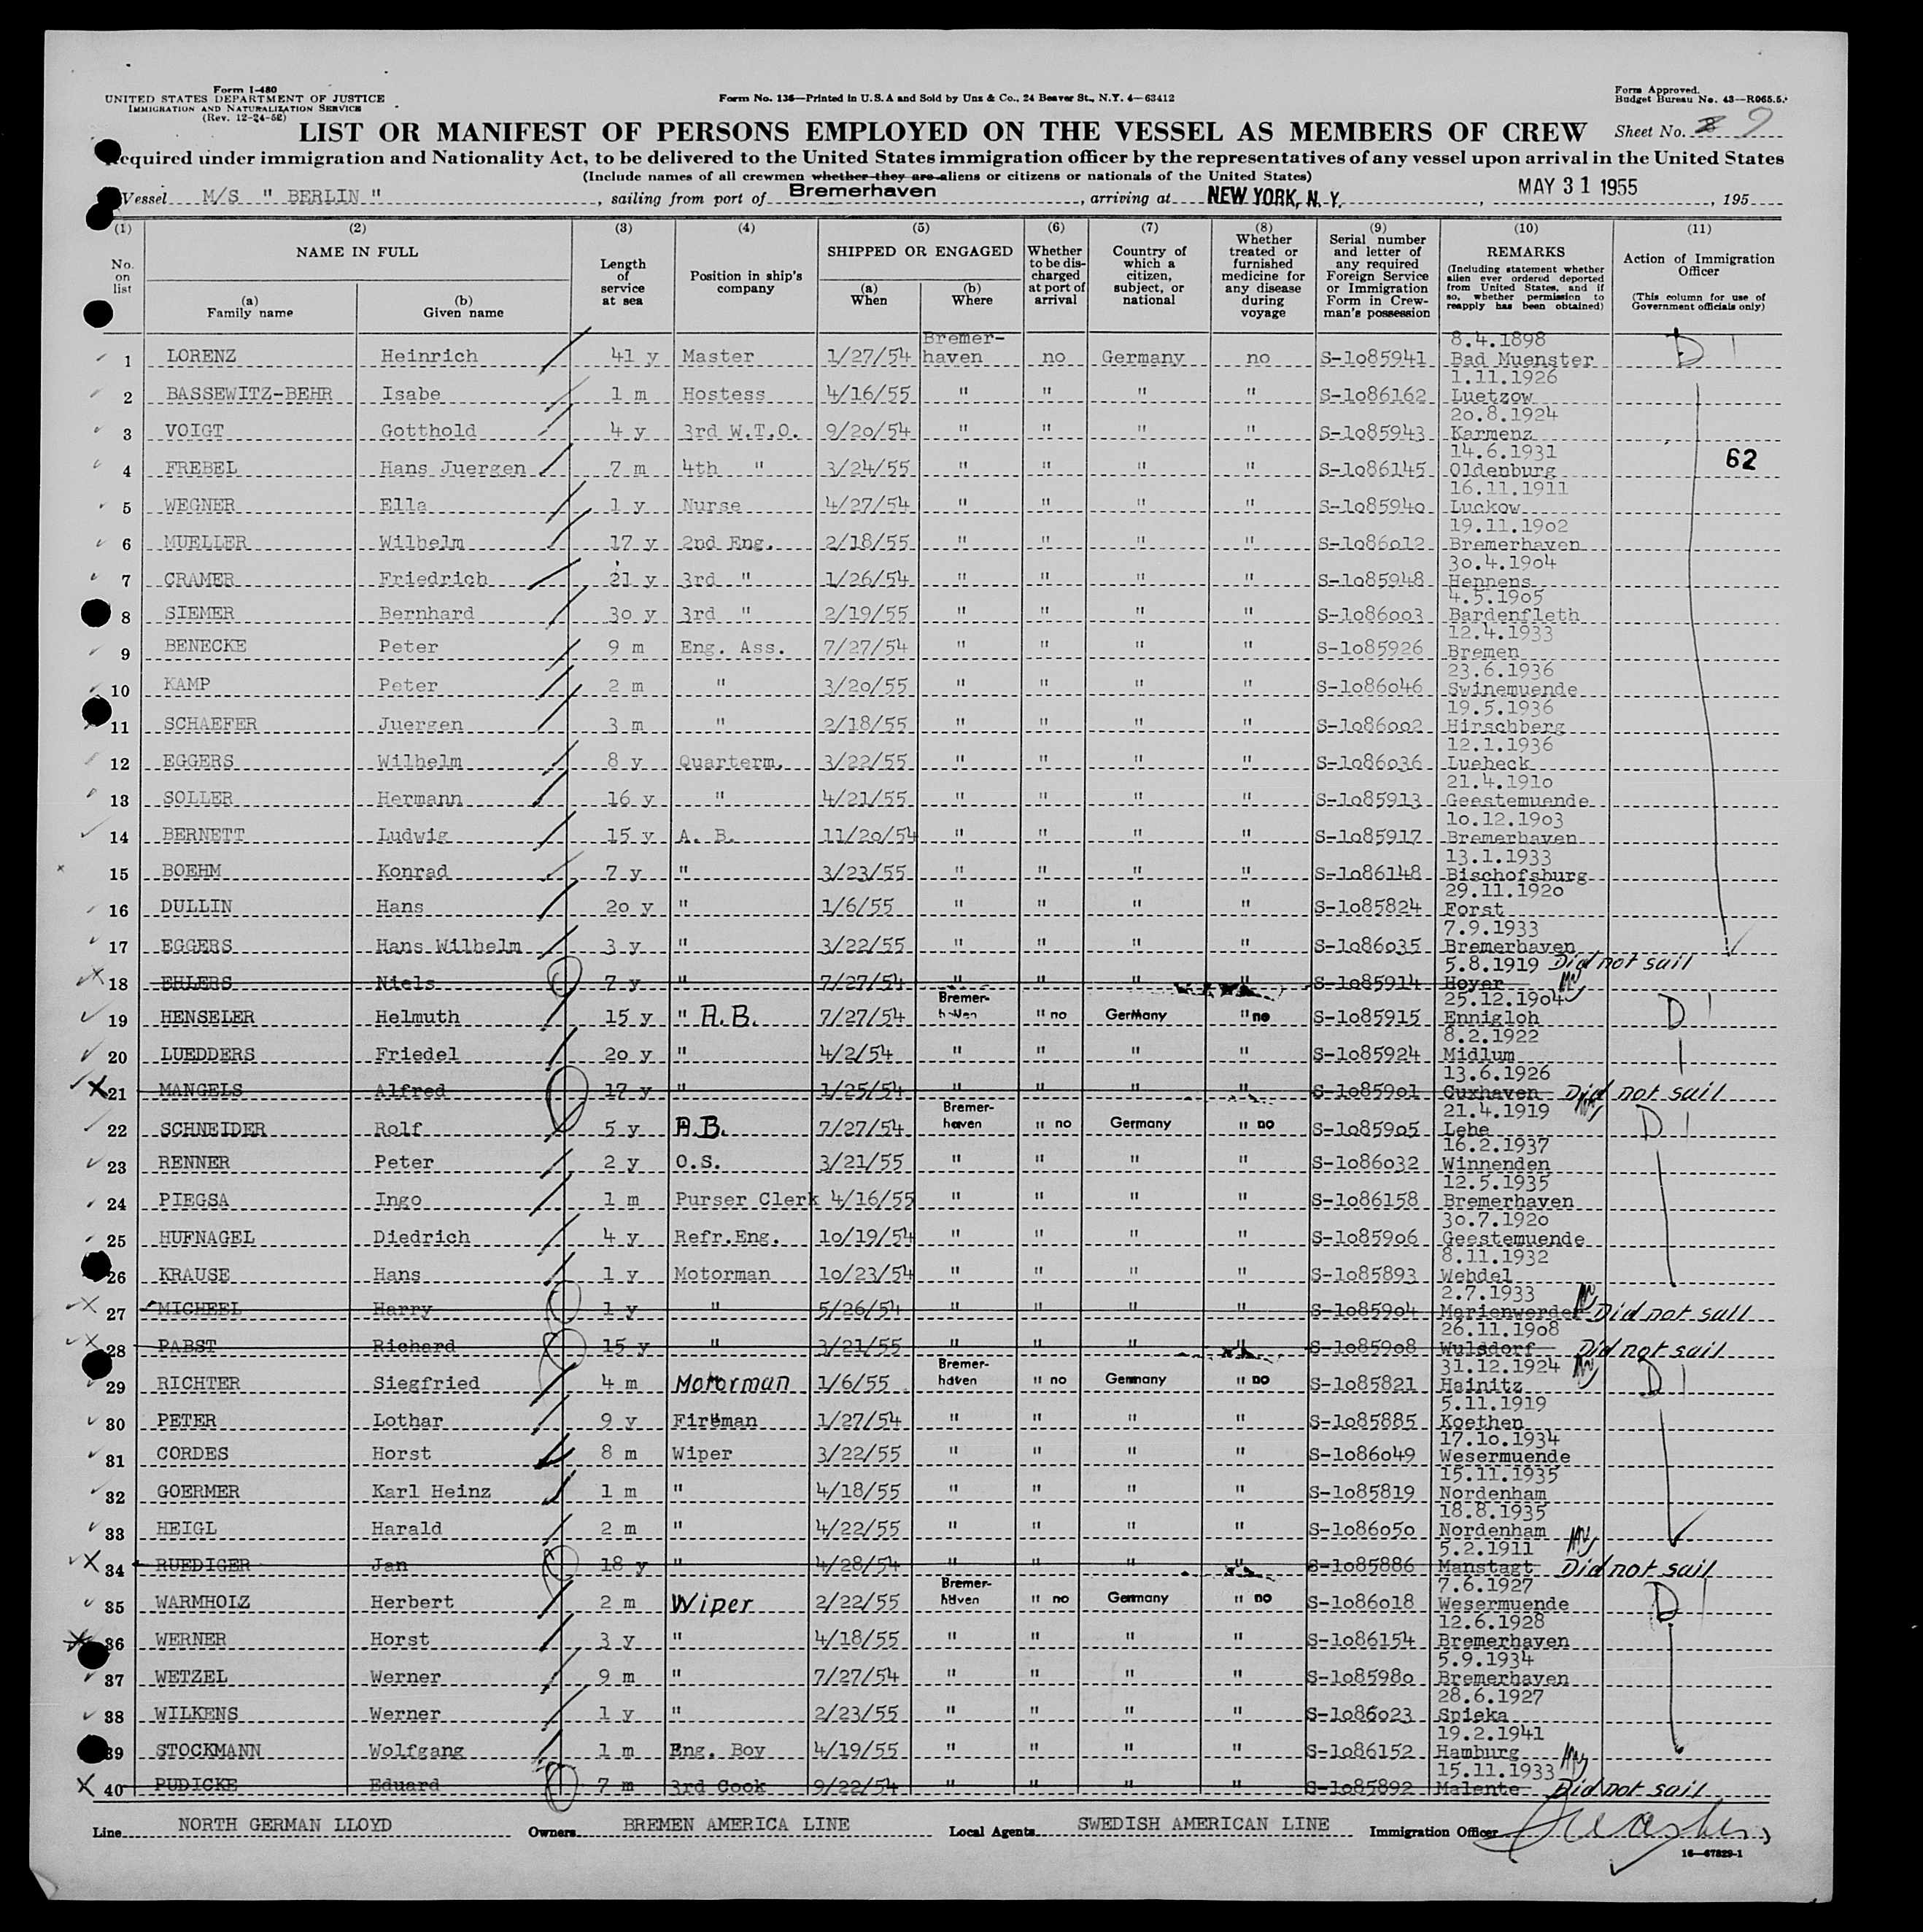 Form I-480
UNITED STATES DEPARTMENT OF JUSTICE
IMMIGRATION AND NATURALIZATION SERVICE
(Rev. 12-24-52)
Form No. 136—Printed in U.S.A and Sold by Unz & Co., 24 Beaver St., N.Y. 4—63412
Form Approved.
Budget Bureau No. 43—R065.5.
LIST OR MANIFEST OF PERSONS EMPLOYED ON THE VESSEL AS MEMBERS OF CREW
Sheet No. 8 9
equired under immigration and Nationality Act, to be delivered to the United States immigration officer by the representatives of any vessel upon arrival in the United States
(Include names of all crewmen whether they are aliens or citizens or nationals of the United States)
Vessel M/S " BERLIN ", sailing from port of Bremerhaven, arriving at NEW YORK, N. Y., MAY 31 1955, 195
(1) (2) (3) (4) (5) (6) (7) (8) (9) (10) (11)
No. on list
NAME IN FULL
(a) Family name
(b) Given name
Length of service at sea
Position in ship's company
SHIPPED OR ENGAGED
(a) When
(b) Where
Whether to be discharged at port of arrival
Country of which a citizen, subject, or national
Whether treated or furnished medicine for any disease during voyage
Serial number and letter of any required Foreign Service or Immigration Form in Crewman's possession
REMARKS
(Including statement whether alien ever ordered deported from United States, and if so, whether permission to reapply has been obtained)
Action of Immigration Officer
(This column for use of Government officials only)
1 LORENZ Heinrich 41 y Master 1/27/54 Bremerhaven no Germany no S-1085941 8.4.1898 Bad Muenster D
2 BASSEWITZ-BEHR Isabe 1 m Hostess 4/16/55 " " " " S-1086162 1.11.1926 Luetzow
3 VOIGT Gotthold 4 y 3rd W.T.O. 9/20/54 " " " " S-1085943 20.8.1924 Karmenz
4 FREBEL Hans Juergen 7 m 4th " 3/24/55 " " " " S-1086145 14.6.1931 Oldenburg 62
5 WEGNER Ella 1 y Nurse 4/27/54 " " " " S-1085940 16.11.1911 Luckow
6 MUELLER Wilhelm 17 y 2nd Eng. 2/18/55 " " " " S-1086012 19.11.1902 Bremerhaven
7 CRAMER Friedrich 21 y 3rd " 1/26/54 " " " " S-1085948 30.4.1904 Heppens
8 SIEMER Bernhard 30 y 3rd " 2/19/55 " " " " S-1086003 4.5.1905 Bardenfleth
9 BENECKE Peter 9 m Eng. Ass. 7/27/54 " " " " S-1085926 12.4.1933 Bremen
10 KAMP Peter 2 m " 3/20/55 " " " " S-1086046 23.6.1936 Swinemuende
11 SCHAEFER Juergen 3 m " 2/18/55 " " " " S-1086002 19.5.1936 Hirschberg
12 EGGERS Wilhelm 8 y Quarterm. 3/22/55 " " " " S-1086036 12.1.1936 Luebeck
13 SOLLER Hermann 16 y " 4/21/55 " " " " S-1085913 21.4.1910 Geestemuende
14 BERNETT Ludwig 15 y A. B. 11/20/54 " " " " S-1085917 10.12.1903 Bremerhaven
15 BOEHM Konrad 7 y " 3/23/55 " " " " S-1086148 13.1.1933 Bischofsburg
16 DULLIN Hans 20 y " 1/6/55 " " " " S-1085824 29.11.1920 Forst
17 EGGERS Hans Wilhelm 3 y " 3/22/55 " " " " S-1086035 7.9.1933 Bremerhaven
18 EHLERS Niels 7 y " 7/27/54 " " " " S-1085914 5.8.1919 Hoyer Did not sail
19 HENSELER Helmuth 15 y " A.B. 7/27/54 Bremerhaven " no Germany " no S-1085915 25.12.1904 Ennigloh D
20 LUEDDERS Friedel 20 y " 4/2/54 " " " " S-1085924 8.2.1922 Midlum
21 MANGELS Alfred 17 y " 1/25/54 " " " " S-1085901 13.6.1926 Cuxhaven Did not sail
22 SCHNEIDER Rolf 5 y A.B. 7/27/54 Bremerhaven " no Germany " no S-1085905 21.4.1919 Lehe D
23 RENNER Peter 2 y O.S. 3/21/55 " " " " S-1086032 16.2.1937 Winnenden
24 PIEGSA Ingo 1 m Purser Clerk 4/16/55 " " " " S-1086158 12.5.1935 Bremerhaven
25 HUFNAGEL Diedrich 4 y Refr.Eng. 10/19/54 " " " " S-1085906 30.7.1920 Geestemuende
26 KRAUSE Hans 1 y Motorman 10/23/54 " " " " S-1085893 8.11.1932 Wehdel
27 MICHEEL Harry 1 y " 5/26/54 " " " " S-1085904 2.7.1933 Marienwerder Did not sail
28 PABST Richard 15 y " 3/21/55 " " " " S-1085908 26.11.1908 Wulsdorf Did not sail
29 RICHTER Siegfried 4 m Motorman 1/6/55 Bremerhaven " no Germany " no S-1085821 31.12.1924 Hainitz D
30 PETER Lothar 9 y Fireman 1/27/54 " " " " S-1085885 5.11.1919 Koethen
31 CORDES Horst 8 m Wiper 3/22/55 " " " " S-1086049 17.10.1934 Wesermuende
32 GOERMER Karl Heinz 1 m " 4/18/55 " " " " S-1085819 15.11.1935 Nordenham
33 HEIGL Harald 2 m " 4/22/55 " " " " S-1086050 18.8.1935 Nordenham
34 RUEDIGER Jan 18 y " 4/28/54 " " " " S-1085886 5.2.1911 Manstagt Did not sail
35 WARMHOLZ Herbert 2 m Wiper 2/22/55 Bremerhaven " no Germany " no S-1086018 7.6.1927 Wesermuende D
36 WERNER Horst 3 y " 4/18/55 " " " " S-1086154 12.6.1928 Bremerhaven
37 WETZEL Werner 9 m " 7/27/54 " " " " S-1085980 5.9.1934 Bremerhaven
38 WILKENS Werner 1 y " 2/23/55 " " " " S-1086023 28.6.1927 Spieka
39 STOCKMANN Wolfgang 1 m Eng. Boy 4/19/55 " " " " S-1086152 19.2.1941 Hamburg
40 PUDICKE Eduard 7 m 3rd Cook 9/22/54 " " " " S-1085892 15.11.1933 Malente Did not sail
Line NORTH GERMAN LLOYD Owners BREMEN AMERICA LINE Local Agents SWEDISH AMERICAN LINE Immigration Officer
16—67829-1